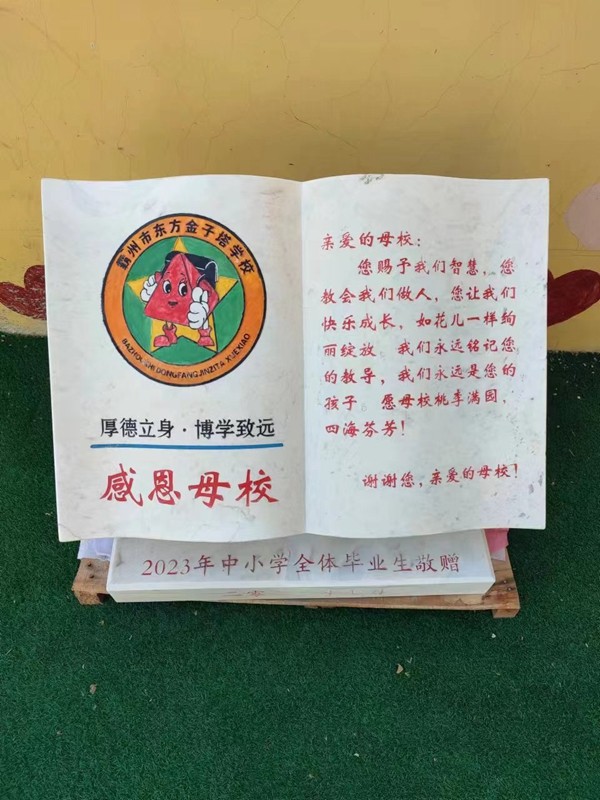 霸州市东方金子塔学校
BAZHOU SHI DONGFANGJINZITA XUEXIAO
厚德立身·博学致远
感恩母校
亲爱的母校：
您赐予我们智慧，您
教会我们做人，您让我们
快乐成长，如花儿一样绚
丽绽放 我们永远铭记您
的教导，我们永远是您的
孩子 愿母校桃李满园，
四海芬芳！
谢谢您，亲爱的母校！
2023年中小学全体毕业生敬赠